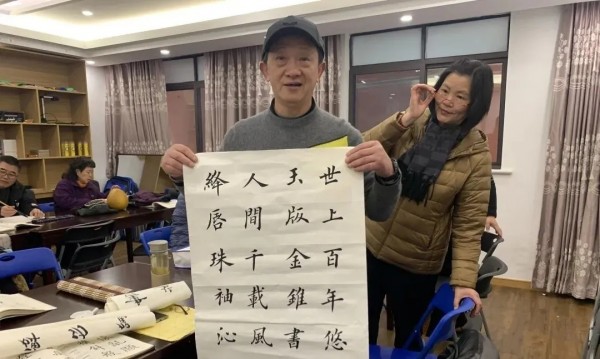 世上百年悠
玉版金錐書
人間千載風
絳唇珠袖沁